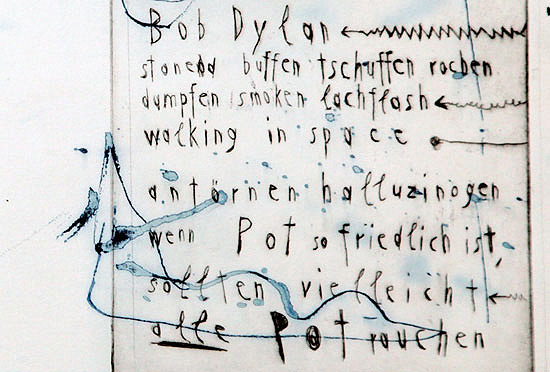 Bob Dylan
stoned buffen tschuffen rochen
dampfen smoken lachflash
walking in space
antörnen halluzinogen
wenn Pot so friedlich ist,
sollten vielleicht
alle Pot rauchen